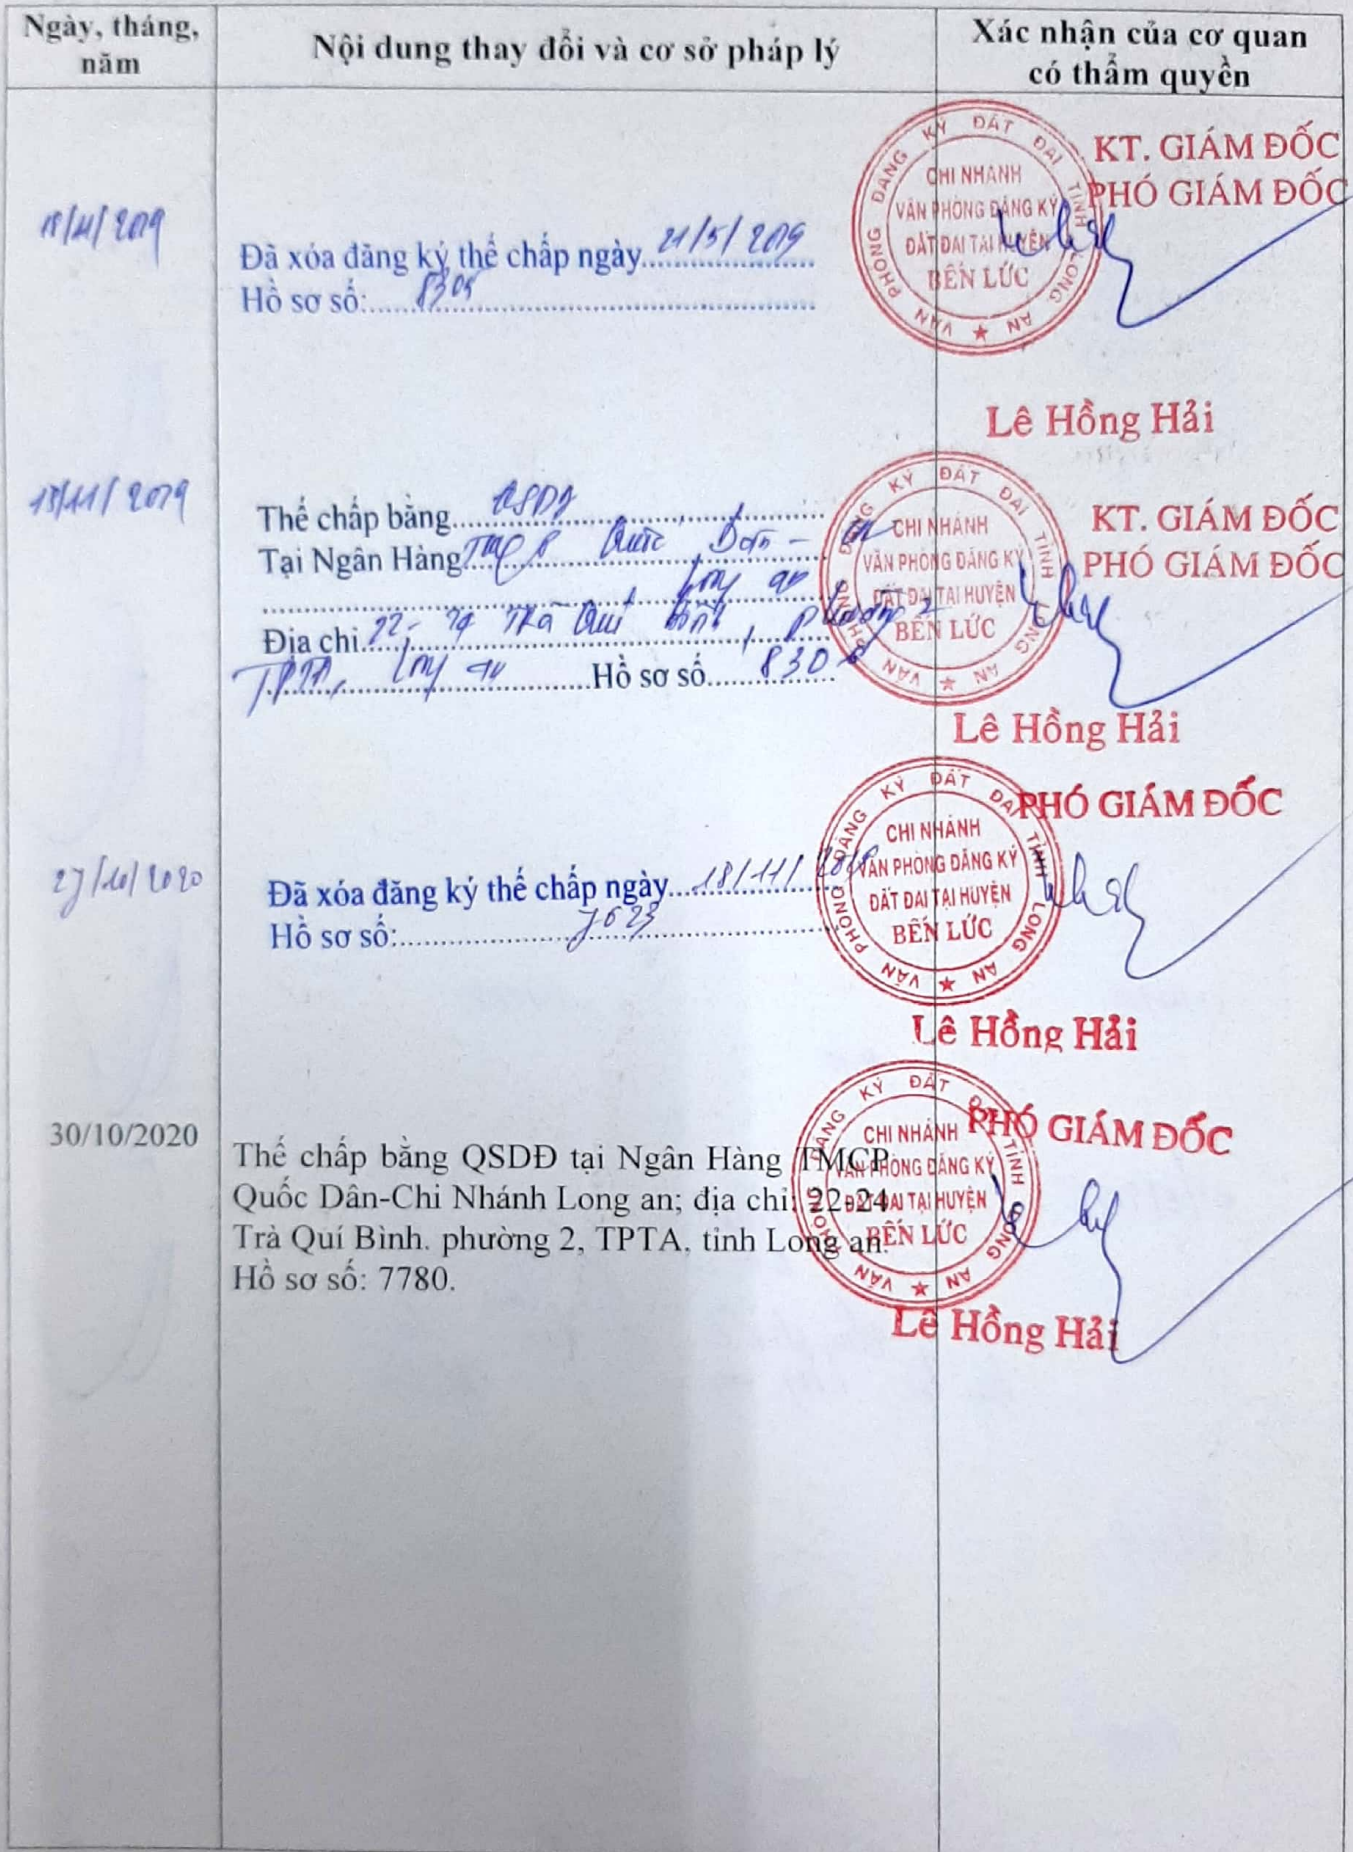 Ngày, tháng,
năm
Nội dung thay đổi và cơ sở pháp lý
Xác nhận của cơ quan
có thẩm quyền
18/11/2019
Đã xóa đăng ký thế chấp ngày 21/5/2019
Hồ sơ số: 8305
VĂN PHÒNG ĐĂNG KÝ ĐẤT ĐAI TỈNH LONG AN
CHI NHÁNH
VĂN PHÒNG ĐĂNG KÝ
ĐẤT ĐAI TẠI HUYỆN
BẾN LỨC
KT. GIÁM ĐỐC
PHÓ GIÁM ĐỐC
Lê Hồng Hải
18/11/2019
Thế chấp bằng QSDĐ
Tại Ngân Hàng TMCP Quốc Dân - CN
Long an
Địa chỉ 22-24 Trà Quí Bình, Phường 2
TPTA, Long an Hồ sơ số 830
VĂN PHÒNG ĐĂNG KÝ ĐẤT ĐAI TỈNH LONG AN
CHI NHÁNH
VĂN PHÒNG ĐĂNG KÝ
ĐẤT ĐAI TẠI HUYỆN
BẾN LỨC
KT. GIÁM ĐỐC
PHÓ GIÁM ĐỐC
Lê Hồng Hải
27/10/2020
Đã xóa đăng ký thế chấp ngày 18/11/
Hồ sơ số: 7623
VĂN PHÒNG ĐĂNG KÝ ĐẤT ĐAI TỈNH LONG AN
CHI NHÁNH
VĂN PHÒNG ĐĂNG KÝ
ĐẤT ĐAI TẠI HUYỆN
BẾN LỨC
PHÓ GIÁM ĐỐC
Lê Hồng Hải
30/10/2020
Thế chấp bằng QSDĐ tại Ngân Hàng TMCP
Quốc Dân-Chi Nhánh Long an; địa chỉ: 22-24
Trà Quí Bình. phường 2, TPTA, tỉnh Long an.
Hồ sơ số: 7780.
VĂN PHÒNG ĐĂNG KÝ ĐẤT ĐAI TỈNH LONG AN
CHI NHÁNH
VĂN PHÒNG ĐĂNG KÝ
ĐẤT ĐAI TẠI HUYỆN
BẾN LỨC
PHÓ GIÁM ĐỐC
Lê Hồng Hải